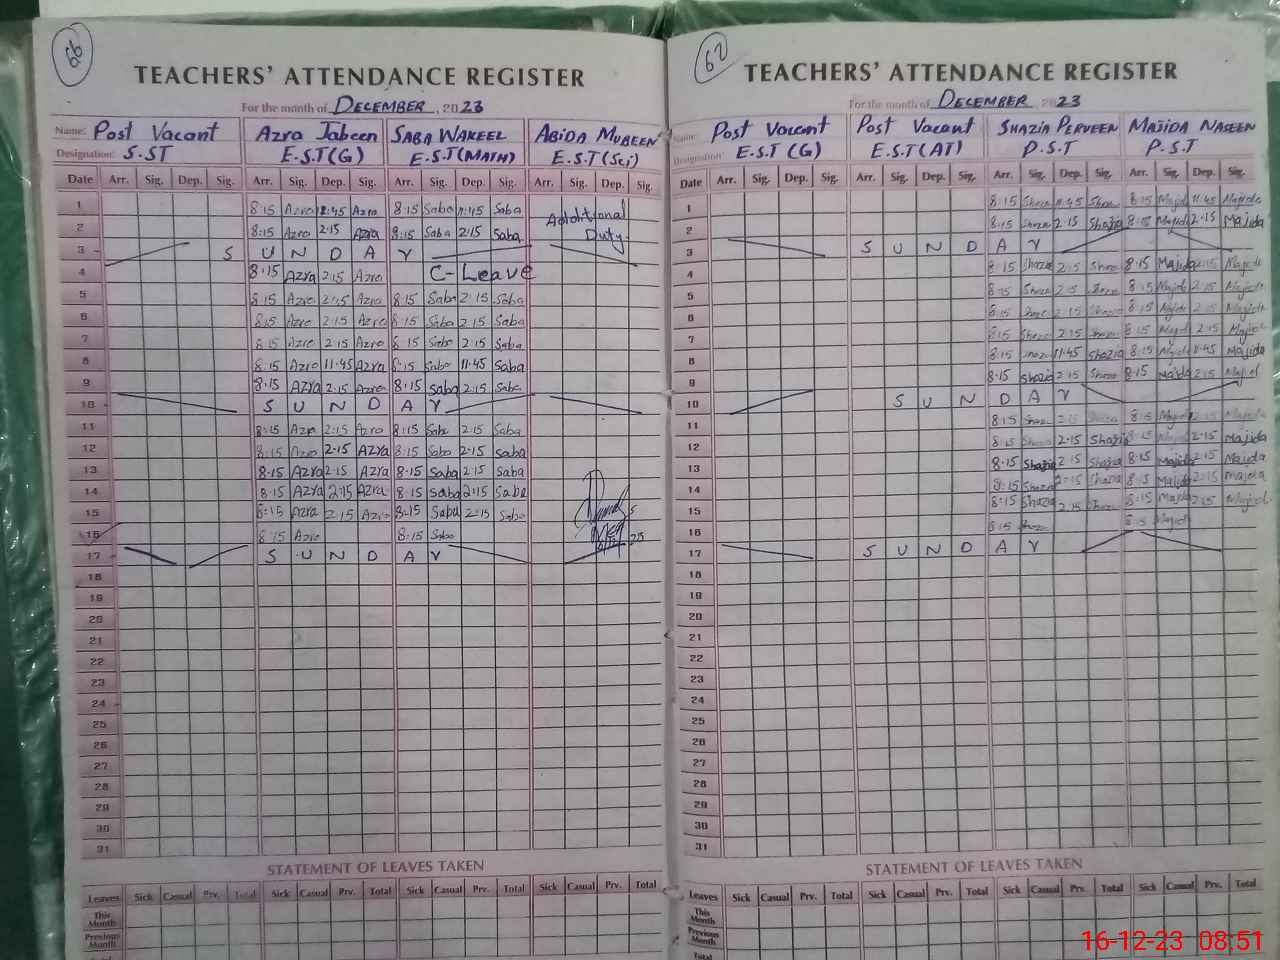 66
TEACHERS' ATTENDANCE REGISTER
For the month of DECEMBER, 2023
Name: Post Vacant Azra Jabeen SABA WAKEEL ABIDA MUBEEN
Designation: S.ST E.S.T(G) E.S.T(MATH) E.S.T(Sci)
Date Arr. Sig. Dep. Sig. Arr. Sig. Dep. Sig. Arr. Sig. Dep. Sig. Arr. Sig. Dep. Sig.
1 8:15 Azra 11:45 Azra 8:15 Saba 11:45 Saba Additional
2 8:15 Azra 2:15 Azra 8:15 Saba 2:15 Saba Duty.
3 S U N D A Y
4 8:15 Azra 2:15 Azra C-Leave
5 8:15 Azra 2:15 Azra 8:15 Saba 2:15 Saba
6 8:15 Azra 2:15 Azra 8:15 Saba 2:15 Saba
7 8:15 Azra 2:15 Azra 8:15 Saba 2:15 Saba
8 8:15 Azra 11:45 Azra 8:15 Saba 11:45 Saba
9 8:15 AZRA 2:15 Azra 8:15 Saba 2:15 Saba
10 S U N D A Y
11 8:15 Azra 2:15 Azra 8:15 Saba 2:15 Saba
12 8:15 Azra 2:15 AZRA 8:15 Saba 2:15 Saba
13 8:15 AZYA 2:15 AZYA 8:15 Saba 2:15 Saba
14 8:15 AZYA 2:15 Azra 8:15 Saba 2:15 Saba
15 8:15 Azra 2:15 Azra 8:15 Saba 2:15 Saba
16 8:15 Azra 8:15 Saba
17 S U N D A Y
18
19
20
21
22
23
24
25
26
27
28
29
30
31
STATEMENT OF LEAVES TAKEN
Leaves Sick Casual Prv. Total Sick Casual Prv. Total Sick Casual Prv. Total Sick Casual Prv. Total
This Month
Previous Month
Total
62
TEACHERS' ATTENDANCE REGISTER
For the month of DECEMBER, 2023
Name: Post Vacant Post Vacant SHAZIA PERVEEN MAJIDA NASEEN
Designation: E.S.T (G) E.S.T(AT) P.S.T P.S.T
Date Arr. Sig. Dep. Sig. Arr. Sig. Dep. Sig. Arr. Sig. Dep. Sig. Arr. Sig. Dep. Sig.
1 8:15 Shazia 11:45 Shazia 8:15 Majida 11:45 Majida
2 8:15 Shazia 2:15 Shazia 8:15 Majida 2:15 Majida
3 S U N D A Y
4 8:15 Shazia 2:15 Shazia 8:15 Majida 2:15 Majida
5 8:15 Shazia 2:15 Shazia 8:15 Majida 2:15 Majida
6 8:15 Shazia 2:15 Shazia 8:15 Majida 2:15 Majida
7 8:15 Shazia 2:15 Shazia 8:15 Majida 2:15 Majida
8 8:15 Shazia 11:45 Shazia 8:15 Majida 11:45 Majida
9 8:15 Shazia 2:15 Shazia 8:15 Majida 2:15 Majida
10 S U N D A Y
11 8:15 Shazia 2:15 Shazia 8:15 Majida 2:15 Majida
12 8:15 Shazia 2:15 Shazia 8:15 Majida 2:15 Majida
13 8:15 Shazia 2:15 Shazia 8:15 Majida 2:15 Majida
14 8:15 Shazia 2:15 Shazia 8:15 Majida 2:15 Majida
15 8:15 Shazia 2:15 Shazia 8:15 Majida 2:15 Majida
16 8:15 Shazia 8:15 Majida
17 S U N D A Y
18
19
20
21
22
23
24
25
26
27
28
29
30
31
STATEMENT OF LEAVES TAKEN
Leaves Sick Casual Prv. Total Sick Casual Prv. Total Sick Casual Prv. Total Sick Casual Prv. Total
This Month
Previous Month
Total
16-12-23 08:51